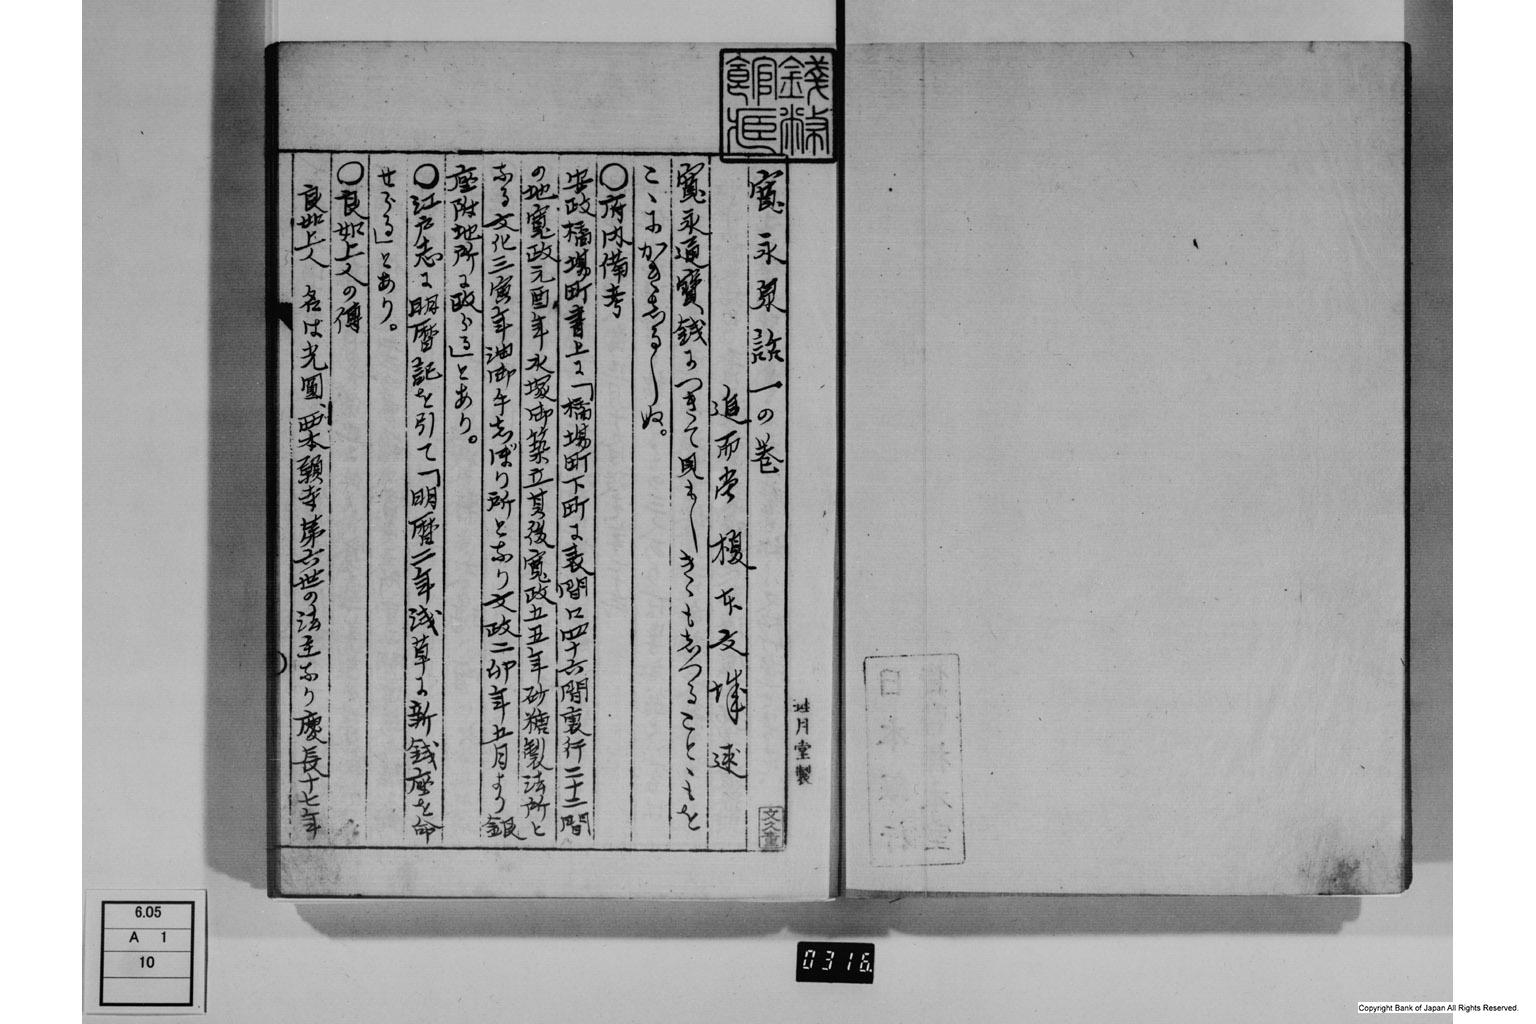 寛永泉話一の巻
追而堂 榎本文城 述
寛永通寳銭につきて見まゝしきゝもしつることゝもを
こゝにかきしるしぬ。
〇府内備考
安政橋場町書上に「橋場町下町に表間口四十六間裏行二十二間
の地寛政元酉年永塚御築立其後寛政五丑年砂糖製法所と
なる文化三寅年油御手しぼり所となり文政二卯年五月より銀
座附地所に成る」とあり。
〇江戸志に明暦記を引て「明暦二年浅草に新銭座を命
せらる」とあり。
〇良如上人の傳
良如上人 名は光圓、西本願寺第六世の法主なり慶長十七年
銭幣館臣
文久堂
月堂製
6.05
A 1
10
0316.
Copyright Bank of Japan All Rights Reserved.